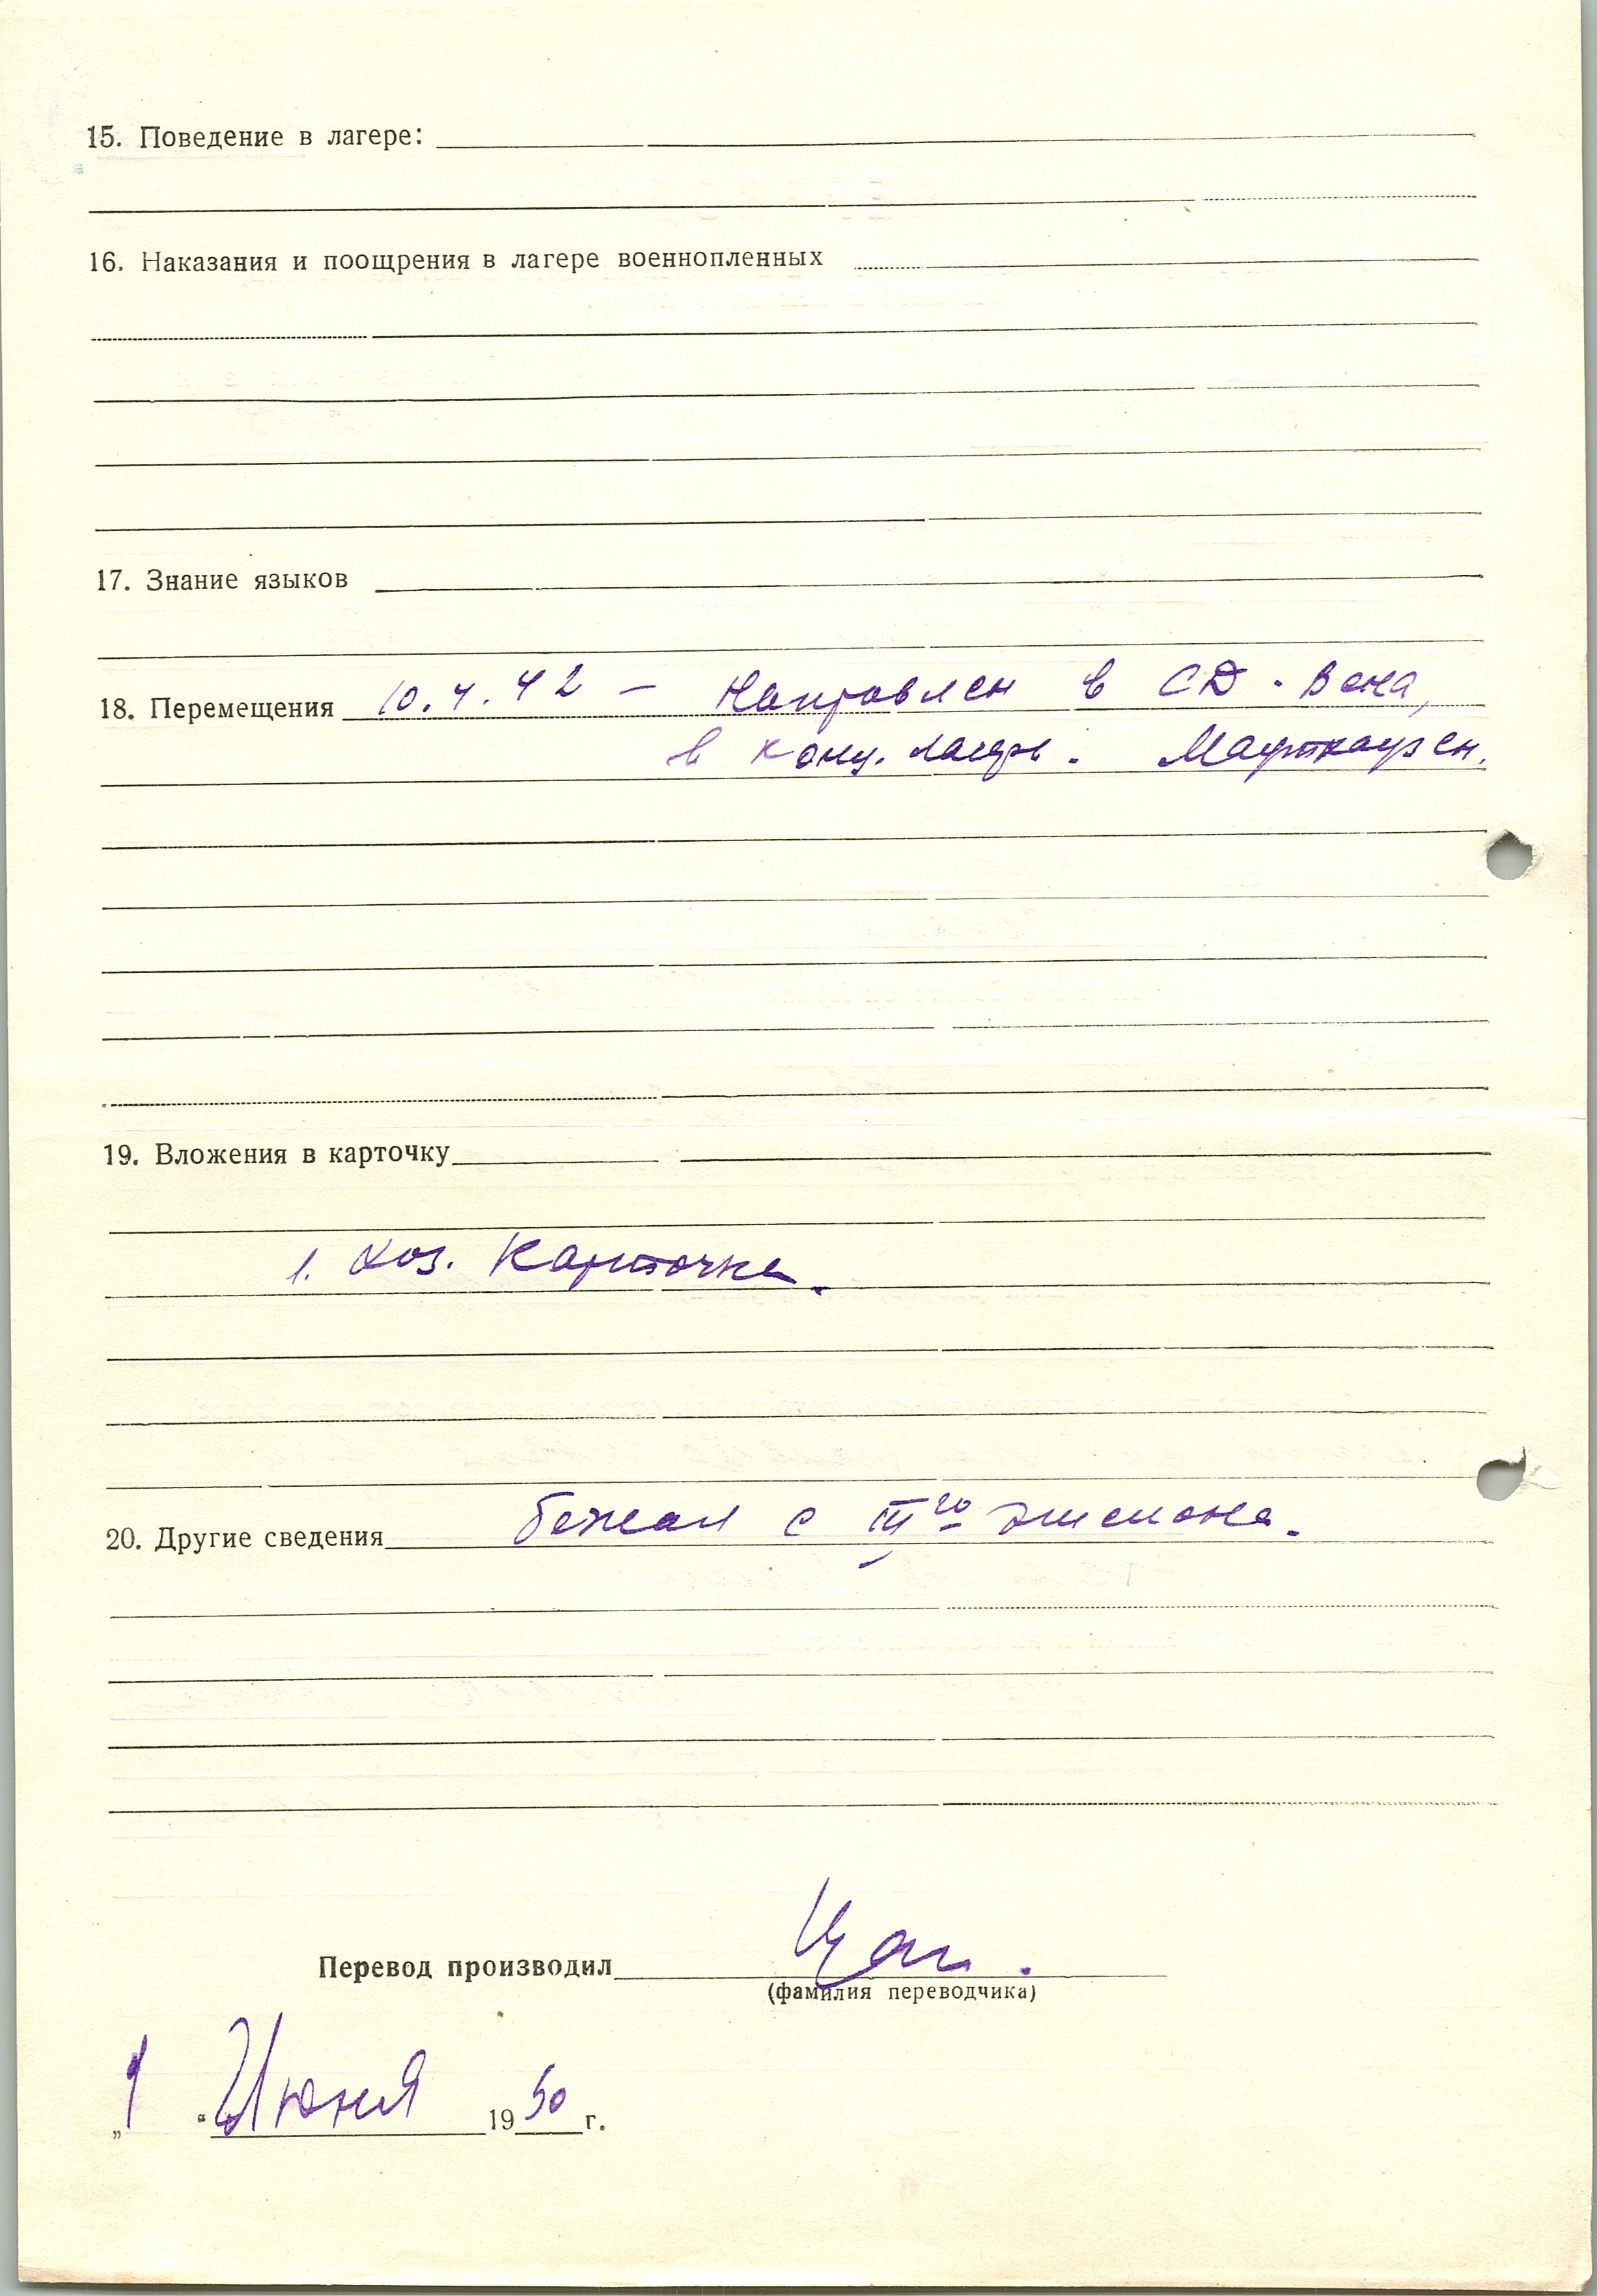 15. Поведение в лагере:
16. Наказания и поощрения в лагере военнопленных
17. Знание языков
18. Перемещения 10.4.42 – Направлен в СД - Вена,
в конц. лагерь - Маутхаузен.
19. Вложения в карточку
1. хоз. карточка.
20. Другие сведения бежал с III го эшелона.
Перевод производил
(фамилия переводчика)
„9 “ Июня 1950 г.